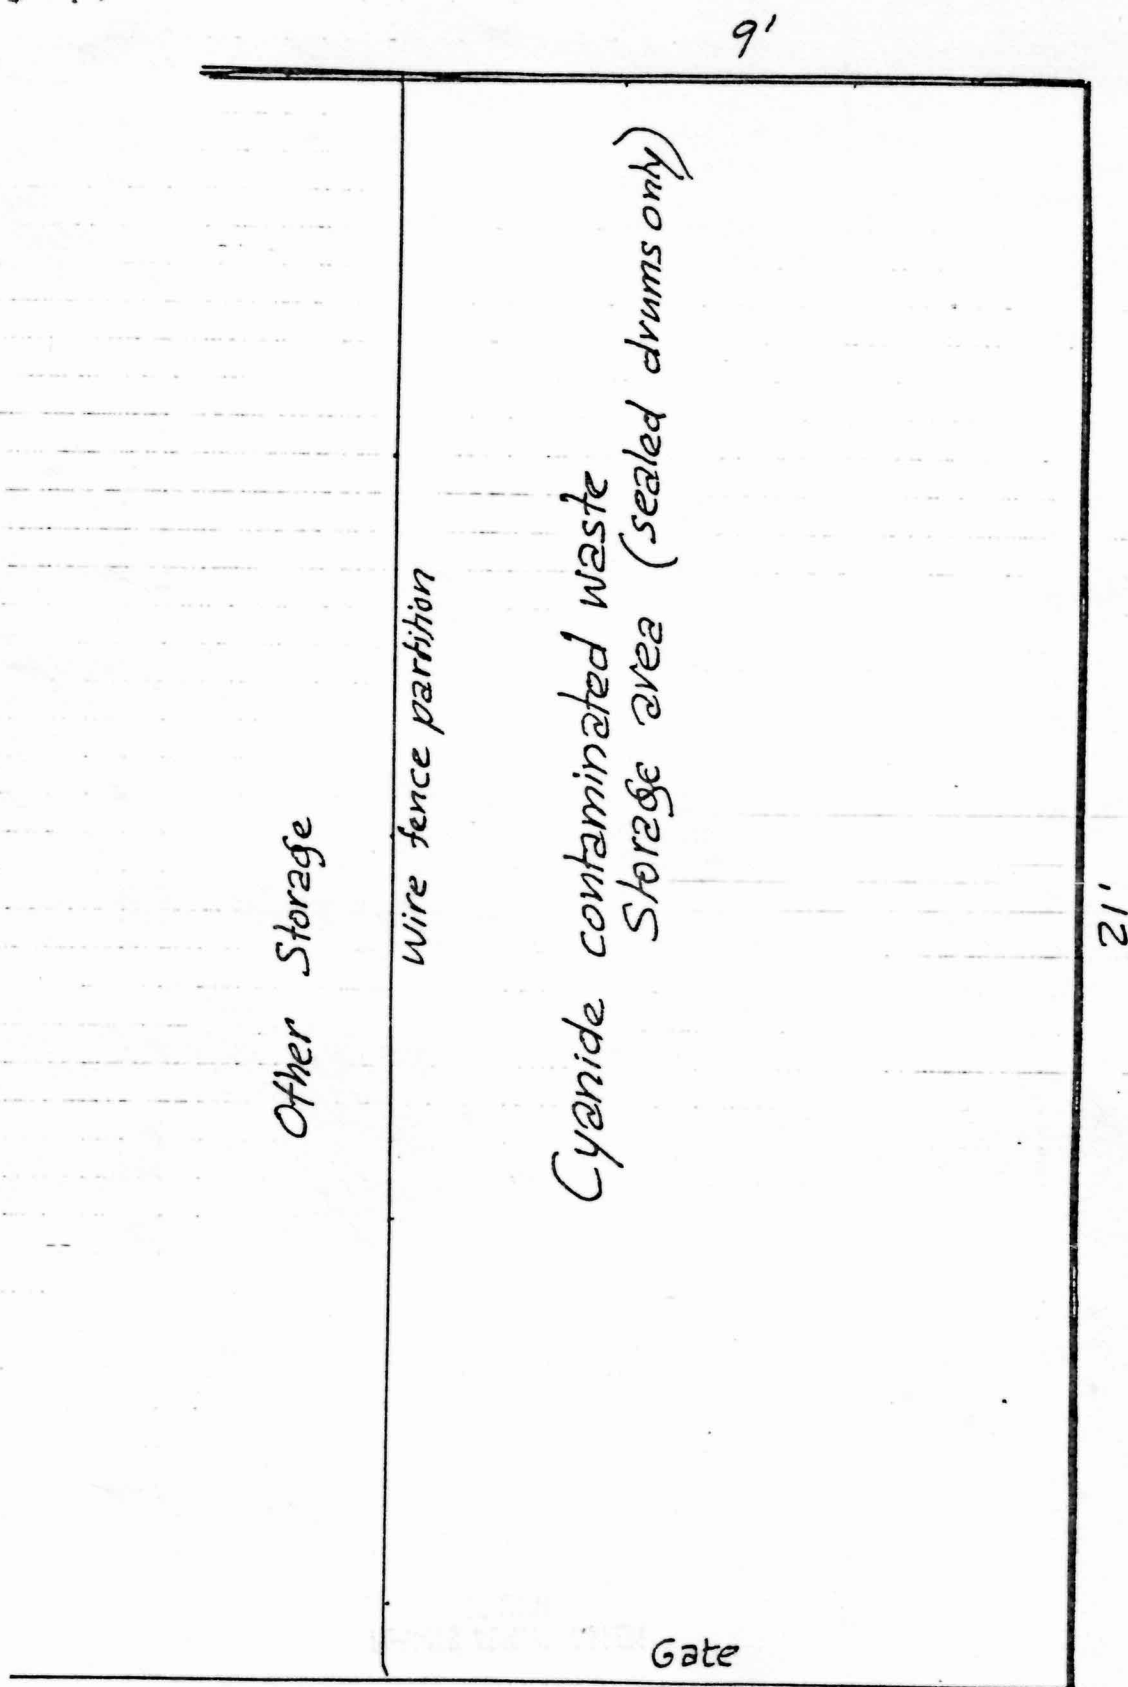 9'
Other Storage
Wire fence partition
Cyanide contaminated waste
Storage area (sealed drums only)
21'
Gate